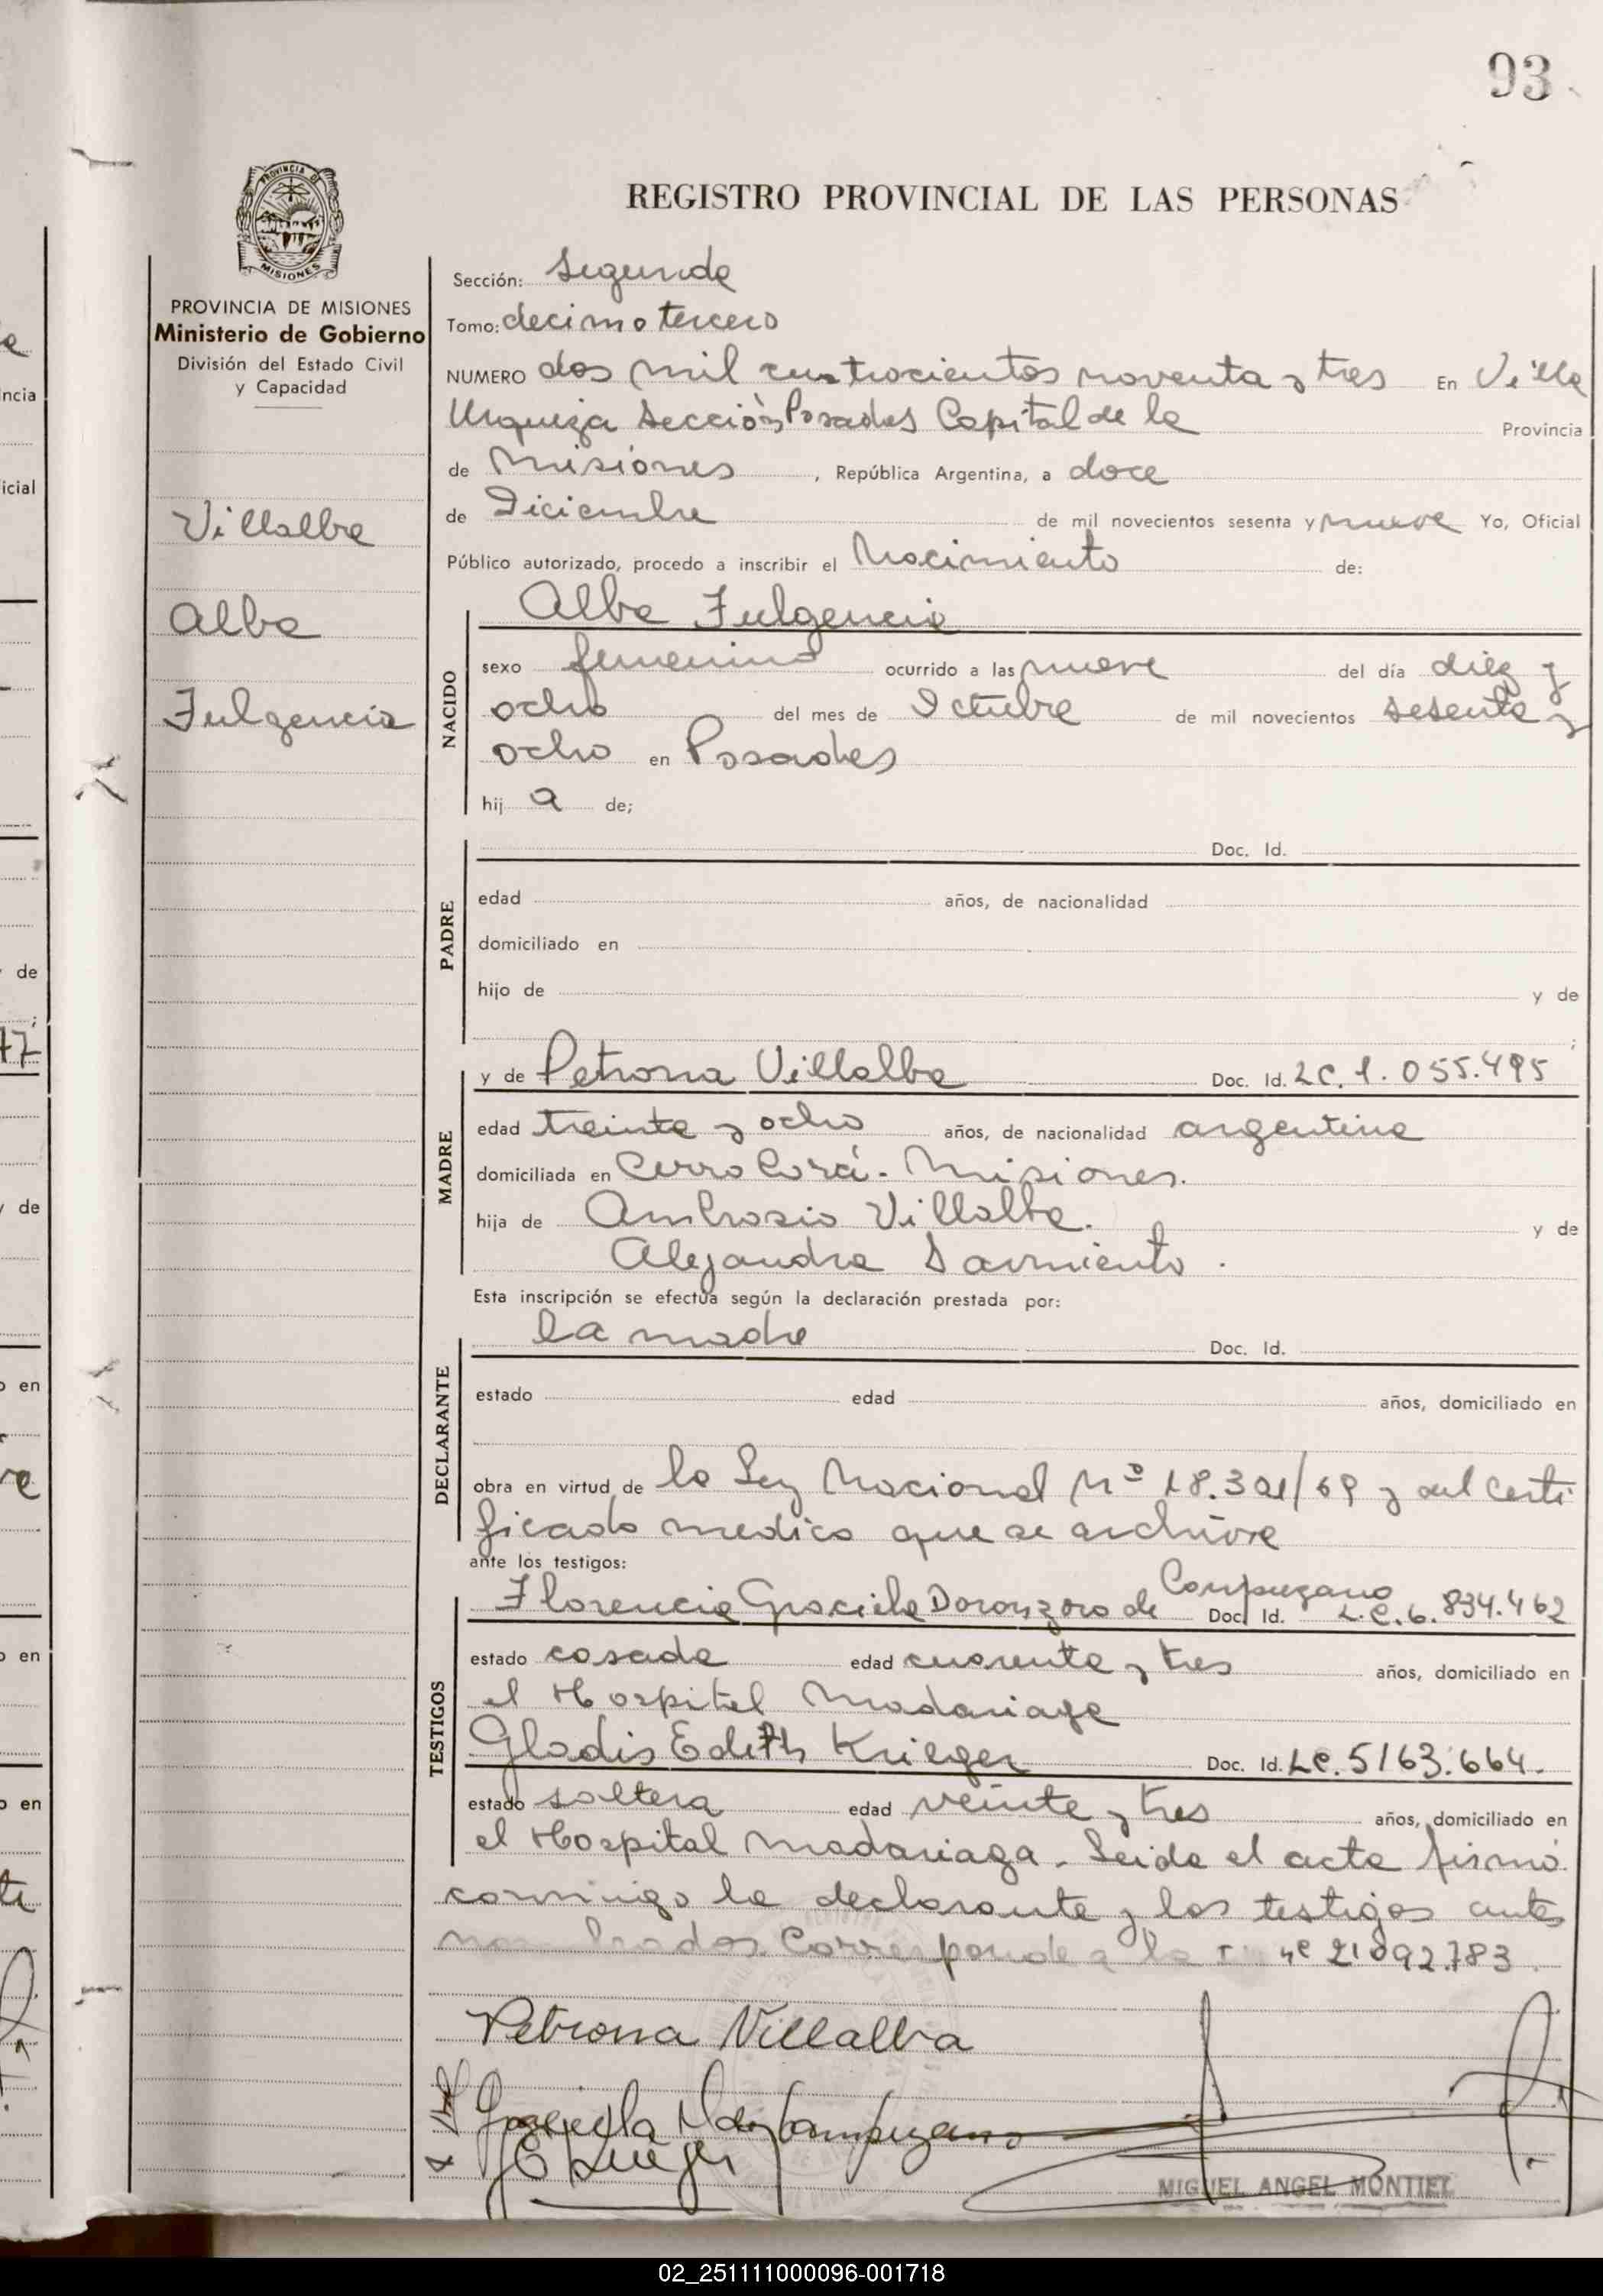 93
REGISTRO PROVINCIAL DE LAS PERSONAS
PROVINCIA DE MISIONES
PROVINCIA DE MISIONES
Ministerio de Gobierno
División del Estado Civil
y Capacidad
Villalba
Alba
Fulgencia
Sección: Segunda
Tomo: decimo tercero
NUMERO dos mil cuatrocientos noventa y tres En Villa
Urquiza Sección Posadas Capital de la Provincia
de Misiones, República Argentina, a doce
de Diciembre de mil novecientos sesenta y nueve Yo, Oficial
Público autorizado, procedo a inscribir el Nacimiento de:
Alba Fulgencia
NACIDO
sexo femenino ocurrido a las nueve del día diez y
ocho del mes de Octubre de mil novecientos sesenta y
ocho en Posadas
hij a de;
PADRE
Doc. Id.
edad años, de nacionalidad
domiciliado en
hijo de y de
;
MADRE
y de Petrona Villalba Doc. Id. LC. 1.055.495
edad treinta y ocho años, de nacionalidad argentina
domiciliada en Cerro Corá - Misiones.
hija de Ambrosio Villalba. y de
Alejandra Sarmiento.
Esta inscripción se efectúa según la declaración prestada por:
DECLARANTE
la madre Doc. Id.
estado edad años, domiciliado en
obra en virtud de la Ley Nacional Nº 18.321/69 y del certi
ficado medico que se archiva
ante los testigos:
TESTIGOS
Florencia Graciela Doronzoro de Campuzano Doc. Id. L.C. 6.834.462
estado casada edad cuarenta y tres años, domiciliado en
el Hospital Madariaga
Gladis Edith Krieger Doc. Id. LC. 5163.664.
estado soltera edad veinte y tres años, domiciliado en
el Hospital Madariaga. Leida el acta firmó
conmigo la declarante y los testigos antes
nombrados. Corresponde a la nº 21092.783.
Petrona Villalba
Graciela Campuzano
MIGUEL ANGEL MONTIEL
02_251111000096-001718